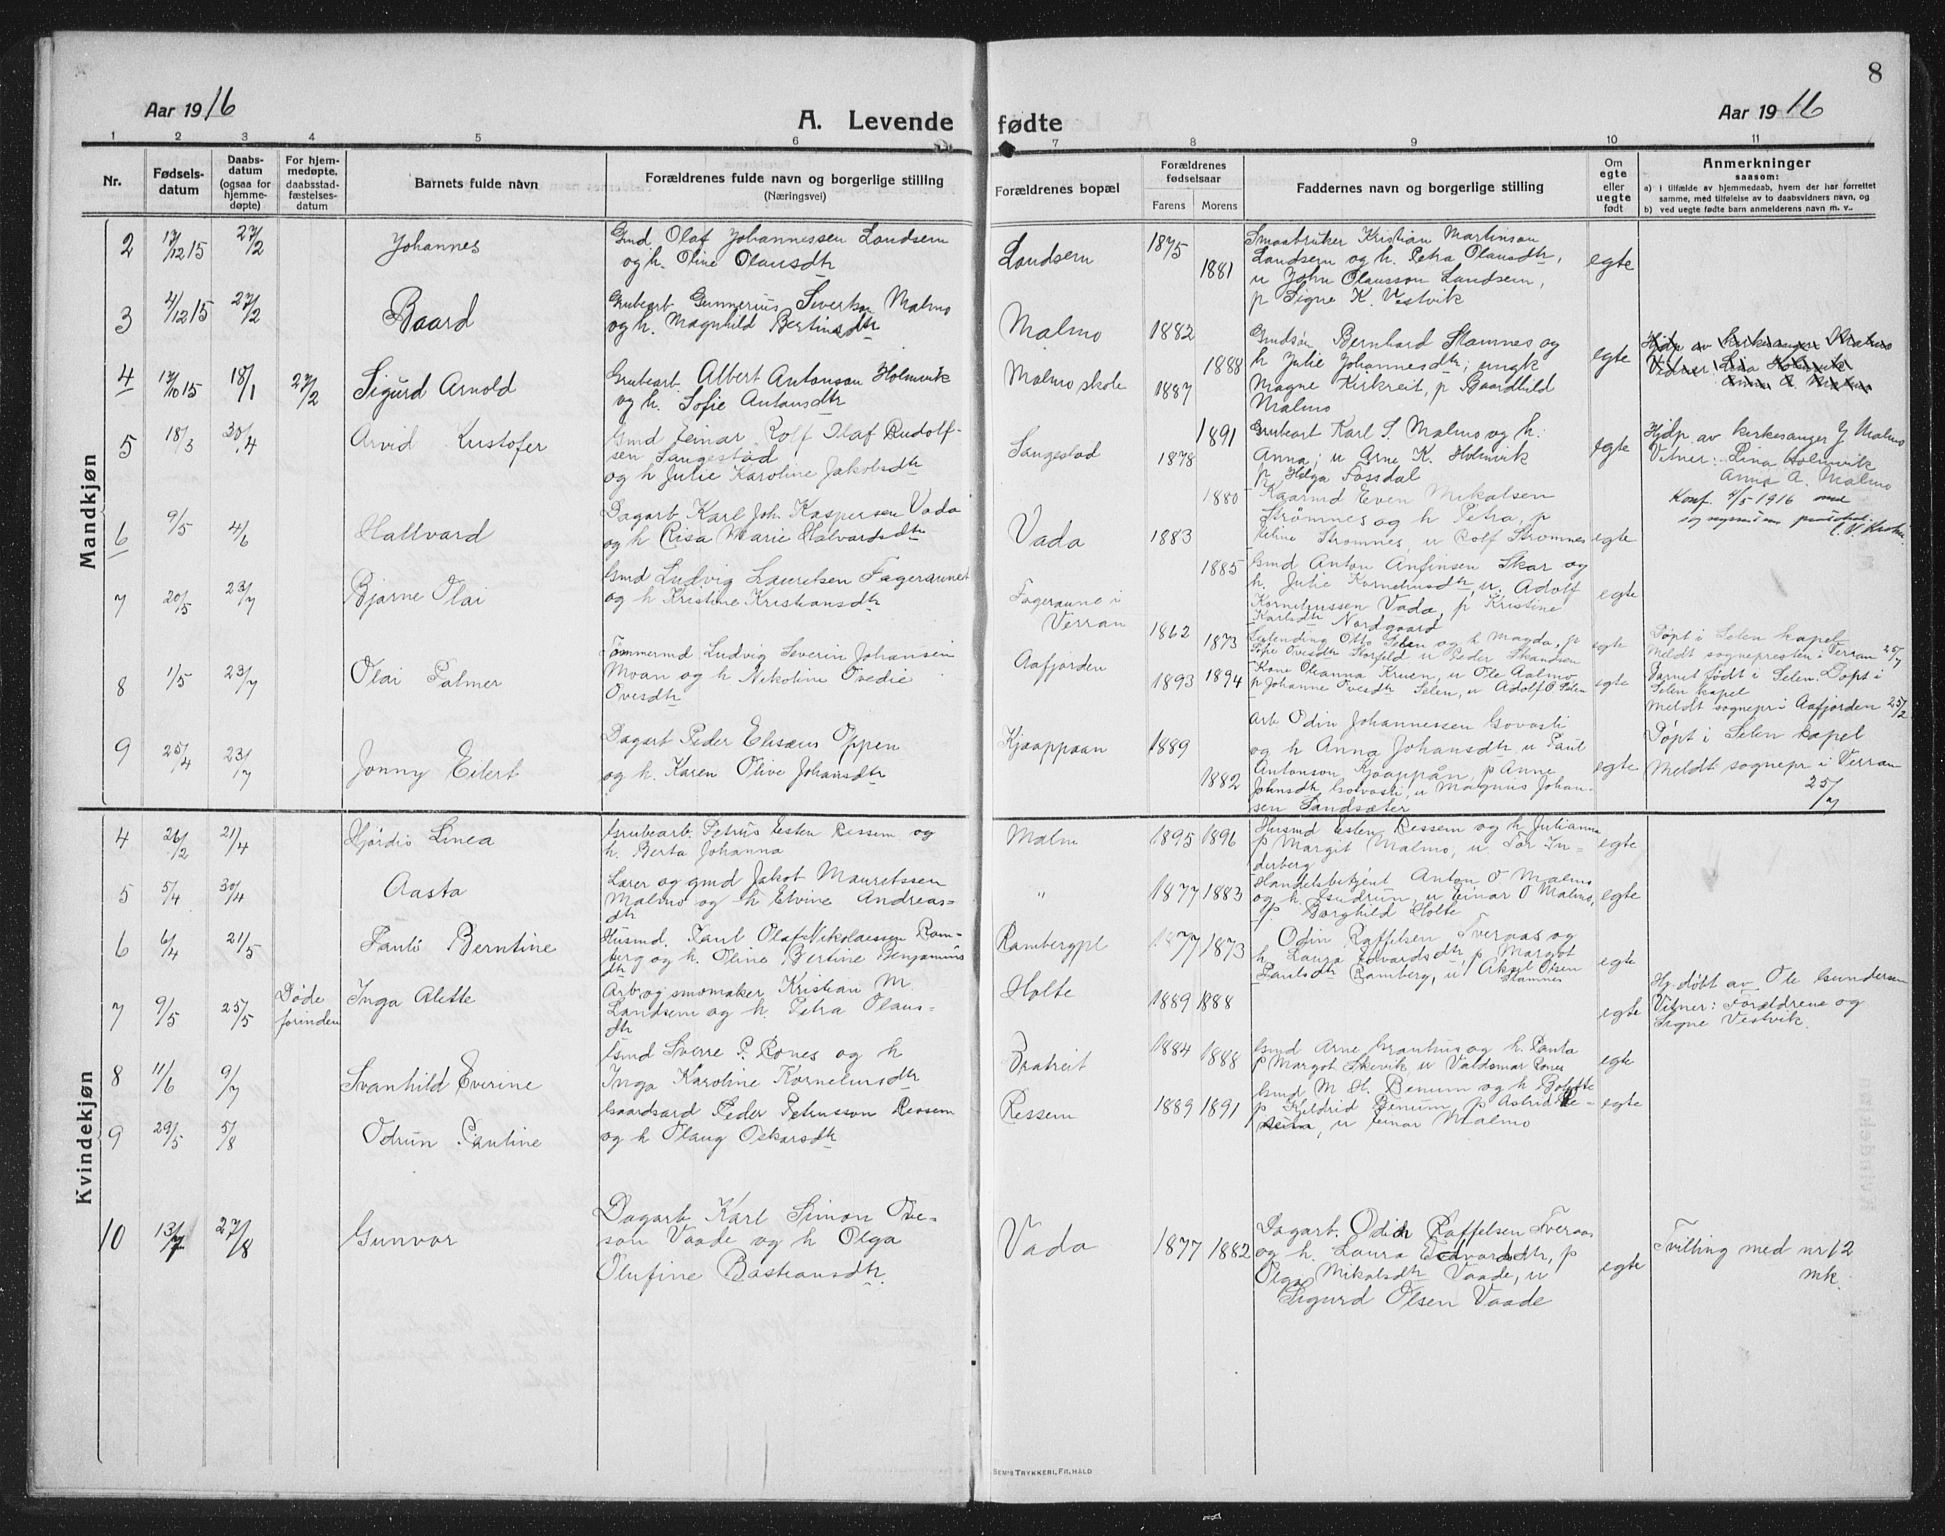 8
Aar 1916
A. Levende fødte
Aar 1916
1 2 3 4 5 6 7 8 9 10 11
Nr.
Fødsels-
datum
Daabs-
datum
(ogsaa for
hjemme-
døpte)
For hjem-
medøpte,
daabsstad-
fæstelses-
datum
Barnets fulde navn
Forældrenes fulde navn og borgerlige stilling
(Næringsvei)
Forældrenes bopæl
Forældrenes
fødselsaar
Farens Morens
Faddernes navn og borgerlige stilling
Om
egte
eller
uegte
født
Anmerkninger
saasom:
a) i tilfælde av hjemmedaab, hvem der har forrettet
samme, med tilføielse av to daabsvidners navn, og
b) ved uegte fødte barn anmelderens navn m. v..
Mandkjøn
2 17/12 15 27/2 Johannes
Gmd. Olaf Johannessen Landsem
og h. Oline Olausdtr
Landsem 1875 1881
Smaabruker Kristian Martinsen
Landsem og h. Petra Olausdtr,
u John Olausson Landsem,
p Signe K. Vestvik
egte
3 4/12 15 27/2 Baard
Grubearb. Gunnerius Sivertsen Malmo
og h. Magnhild Bertinsdtr
Malmo 1882 1888
Gmdsøn Bernhard Stamnes og
h Julie Johannesdtr; ungk
Magne Kirkreit, p Baardhild
Malmo
egte
Hjdp av kirkesanger Malmo
Vidner Lina Holmvik
Anna A. Malmo
4 17/10 15 18/1 27/2 Sigurd Arnold
Grubearb. Albert Antonsen Holmvik
og h. Sofie Antonsdtr
Malmo skole 1887 1891
Grubearb Karl S. Malmo og h:
Anna; u Arne K. Holmvik
p Helga Fossdal
egte
Hjdp. av kirkesanger J Malmo
Vitner: Lina Holmvik
Anna A. Malmo
Konf. 4/5 1916
5 18/3 30/4 Arvid Kristofer
Gmd Einar Rolf Olaf Rudolf-
sen Sangestad
og h Julie Karoline Jakobsdtr
Sangestad 1878 1880
Kaarmd Even Mikalsen
Strømnes og h Petra, p
Strømnes u Rolf Strømnes
egte
6 9/5 4/6 Hallvard
Dagarb Karl Joh. Kaspersen Vada
og h Risa Marie Halvardsdtr
Vada 1883 1885
Gmd Anton Anfinsen Skar og
h. Julie Korneliusdtr, u. Adolf
Korneliussen Vada, p Kristine
Karlsdtr Nordgaard
egte
7 20/5 23/7 Bjarne Olai
Gmd Ludvig Lauritsen Fageraunet
og h Kristine Kristiansdtr
Fageraune i
Verran 1862 1873
Otto Selen og h Magda, p
Sofie Ovesdtr Storfeld u Peder Strandsen
egte
Døpt i Selen kapel
Meldt sognepresten i Verran 25/7
8 1/5 23/7 Olai Palmer
Tømmermd Ludvig Severin Johansen
Moan og h Nikoline Ovedie
Ovesdtr
Aafjorden 1893 1894
Kone Oleanna Kruen, u Ole Aalmo
p Johanne Ovesdtr Selen, u Adolf O. Selen
egte
Barnet født i Selen. Døpt i
Selen kapel
Meldt sognepr i Aafjorden 25/7
9 25/4 23/7 Jonny Eilert
Dagarb Peder Elisæus Oppen
og h. Karen Olive Johansdtr
Kjøappaan 1889 1882
Arb Odin Johannessen Govasli
og h Anna Johansdtr u Paul
Antonson, Kjøappån, p Anne
Johnsdtr Govasli, u Magnus Johan-
sen Sandsæter
egte
Døpt i Selen kapel
Meldt sognepr i Verran
25/7
Kvindekjøn
4 26/2 21/4 Hjørdis Linea
Grubearb. Petrus Esten Ressem og
h. Berta Johanna
Malm 1895 1896
Husmd Esten Ressem og h Julianna
p Margit Malmo, u Tor In-
derberg
egte
5 5/4 30/4 Aasta
Lærer og gmd Jakob Mauritssen
Malmo og h Elvine Andreas-
dtr
" 1877 1883
Handelsbetjent Anton O Malmo
og h. Gudrun, u Einar O Malmo,
p. Borghild Holte
egte
6 6/4 21/5 Paulo Berntine
Husmd. Paul Olaf Nikolaessen Ram-
berg og h. Oline Bertine Benjamins
dtr
Rambergpl 1877 1873
Odin Raffelsen Tveraas og
h Laura Edvardsdtr, p Margot
Paulsdtr Ramberg, u Aksel Olsen
Stamnes
egte
7 9/5 25/5 Døde
forinden Inga Alette
Arb og smomaker Kristian M.
Landsem og h. Petra Olaus-
dtr
Holte 1889 1888
egte
Hj. døbt av Ole Gundersen
Vitner: Forældrene og
Signe Vestvik.
8 11/6 9/7 Svanhild Everine
Gmd Sverre P. Rones og h
Inga Karoline Korneliusdtr
Bratreit 1884 1888
Gmd Arne Granhus og h. Paula
p Margot Skevik, u Valdemar Rones
egte
9 29/5 5/8 Odrun Pauline
Gaardsard Peder Petrussen Ressem
og h Olaug Oskarsdtr
Ressem 1889 1891
Gmd M. H. Benum og h Bolette
p Gjildrid Benum, p Astrid Re-
, u Einar Malmo
egte
10 13/7 27/8 Gunvor
Dagarb Karl Simon Ove-
son Vaade og h Olga
Olufine Bastiansdtr.
Vada 1877 1882
Dagarb. Odin Raffelsen Tveraas
og h. Laura Edvardsdtr, p
Olga Mikalsdtr Vaade, u
Sigurd Olsen Vaade
egte
Tvilling med nr 12
mk.
SEM'S TRYKKERI, FR. HALD